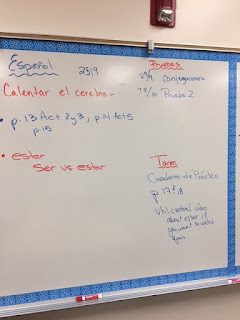 Español
25|9
Calentar el cerebro -
• p.13 Act 2y3, p.14 Act 5
p.15
• estar
Ser vs estar
Pruebas
29/9 Conjugaciones
Prueba 2
Tarea
Cuaderno de Práctica
p. 17 y 18
about estar if
you want to watch
again.